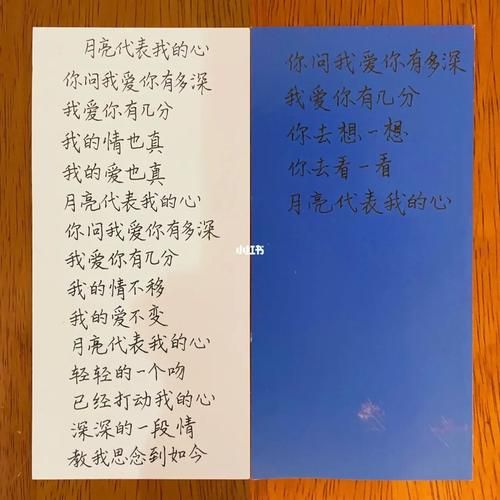 月亮代表我的心
你问我爱你有多深
我爱你有几分
我的情也真
我的爱也真
月亮代表我的心
你问我爱你有多深
我爱你有几分
我的情不移
我的爱不变
月亮代表我的心
轻轻的一个吻
已经打动我的心
深深的一段情
教我思念到如今
你问我爱你有多深
我爱你有几分
你去想一想
你去看一看
月亮代表我的心
小红书